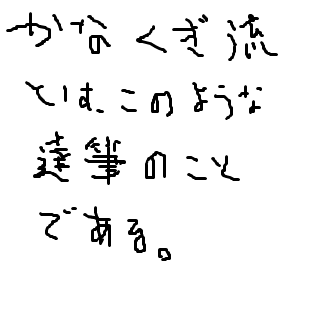 かなくぎ流
とは、このような
達筆のこと
である。